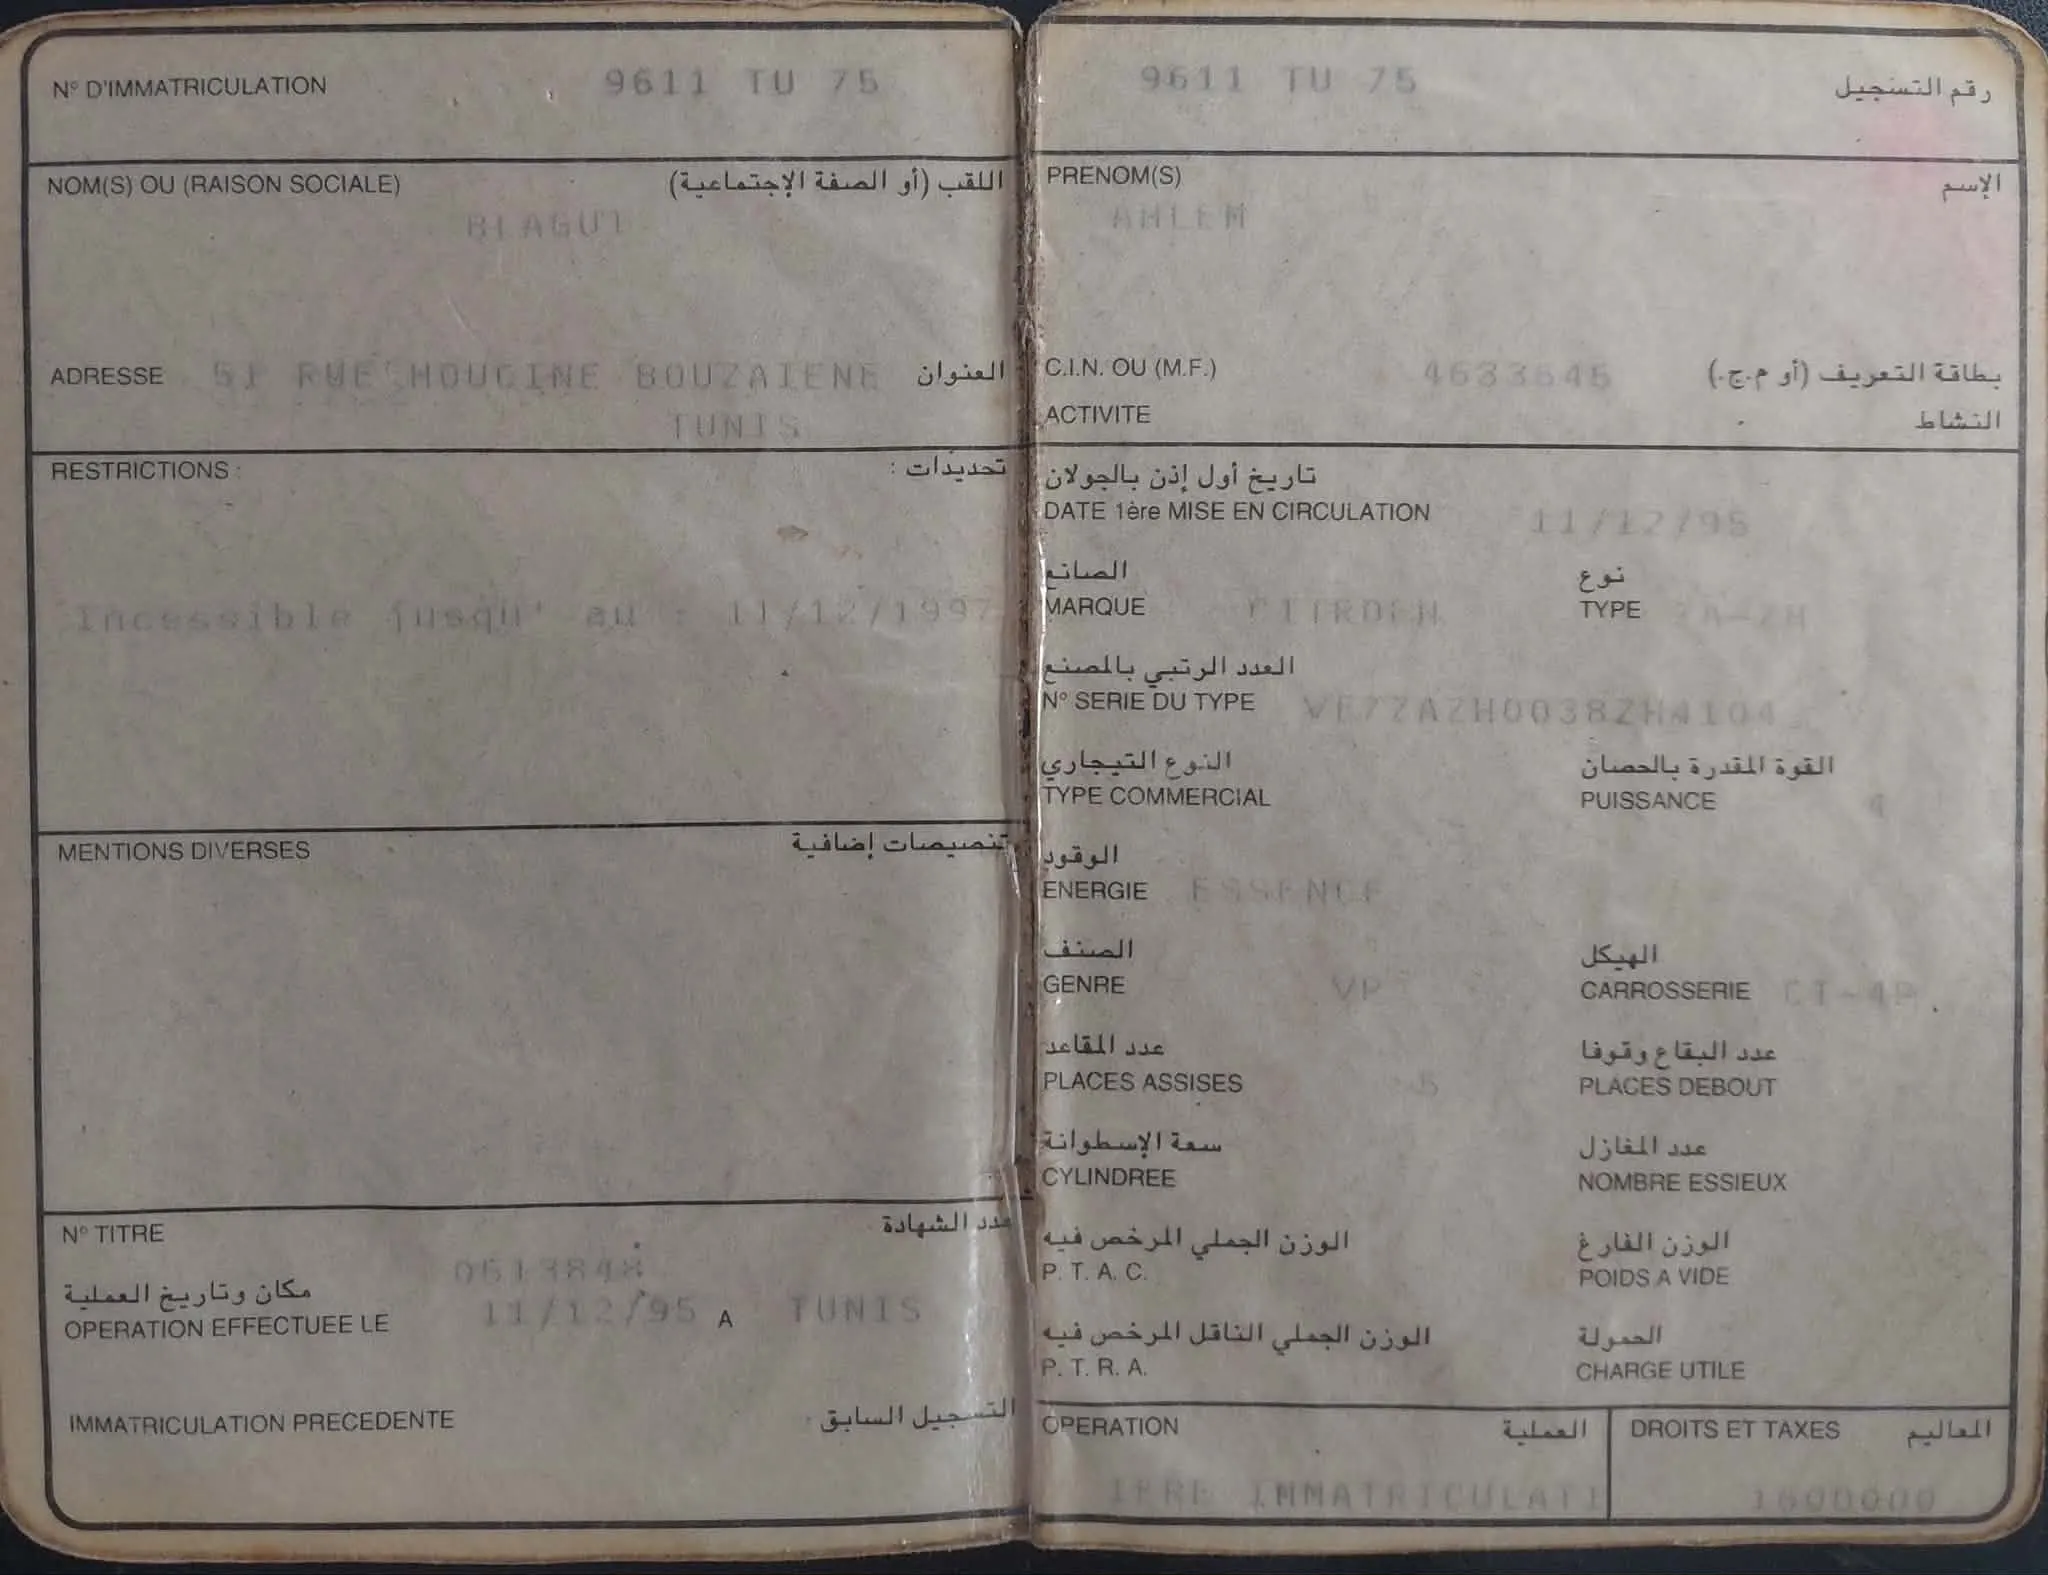 N° D'IMMATRICULATION 9611 TU 75
NOM(S) OU (RAISON SOCIALE) اللقب (أو الصفة الإجتماعية)
BLAGUI
ADRESSE 51 RUE HOUCINE BOUZAIENE العنوان
TUNIS
RESTRICTIONS : تحديدات :
Incessible jusqu' au : 11/12/1997
MENTIONS DIVERSES تنصيصات إضافية
N° TITRE عدد الشهادة
0613848
مكان وتاريخ العملية
OPERATION EFFECTUEE LE 11/12/95 A TUNIS
IMMATRICULATION PRECEDENTE التسجيل السابق
9611 TU 75 رقم التسجيل
PRENOM(S) الإسم
AHLEM
C.I.N. OU (M.F.) 4633645 بطاقة التعريف (أو م.ج.)
ACTIVITE النشاط
تاريخ أول إذن بالجولان
DATE 1ère MISE EN CIRCULATION 11/12/95
الصانع نوع
MARQUE CITROEN TYPE
العدد الرتبي بالمصنع
N° SERIE DU TYPE
النوع التيجاري القوة المقدرة بالحصان
TYPE COMMERCIAL PUISSANCE 4
الوقود
ENERGIE ESSENCE
الصنف الهيكل
GENRE VP CARROSSERIE CI-4P
عدد المقاعد عدد البقاع وقوفا
PLACES ASSISES 5 PLACES DEBOUT
سعة الإسطوانة عدد المغازل
CYLINDREE NOMBRE ESSIEUX
الوزن الجملي المرخص فيه الوزن الفارغ
P. T. A. C. POIDS A VIDE
الوزن الجملي الناقل المرخص فيه الحمولة
P. T. R. A. CHARGE UTILE
OPERATION العملية DROITS ET TAXES المعاليم
1ERE IMMATRICULATI 1600000